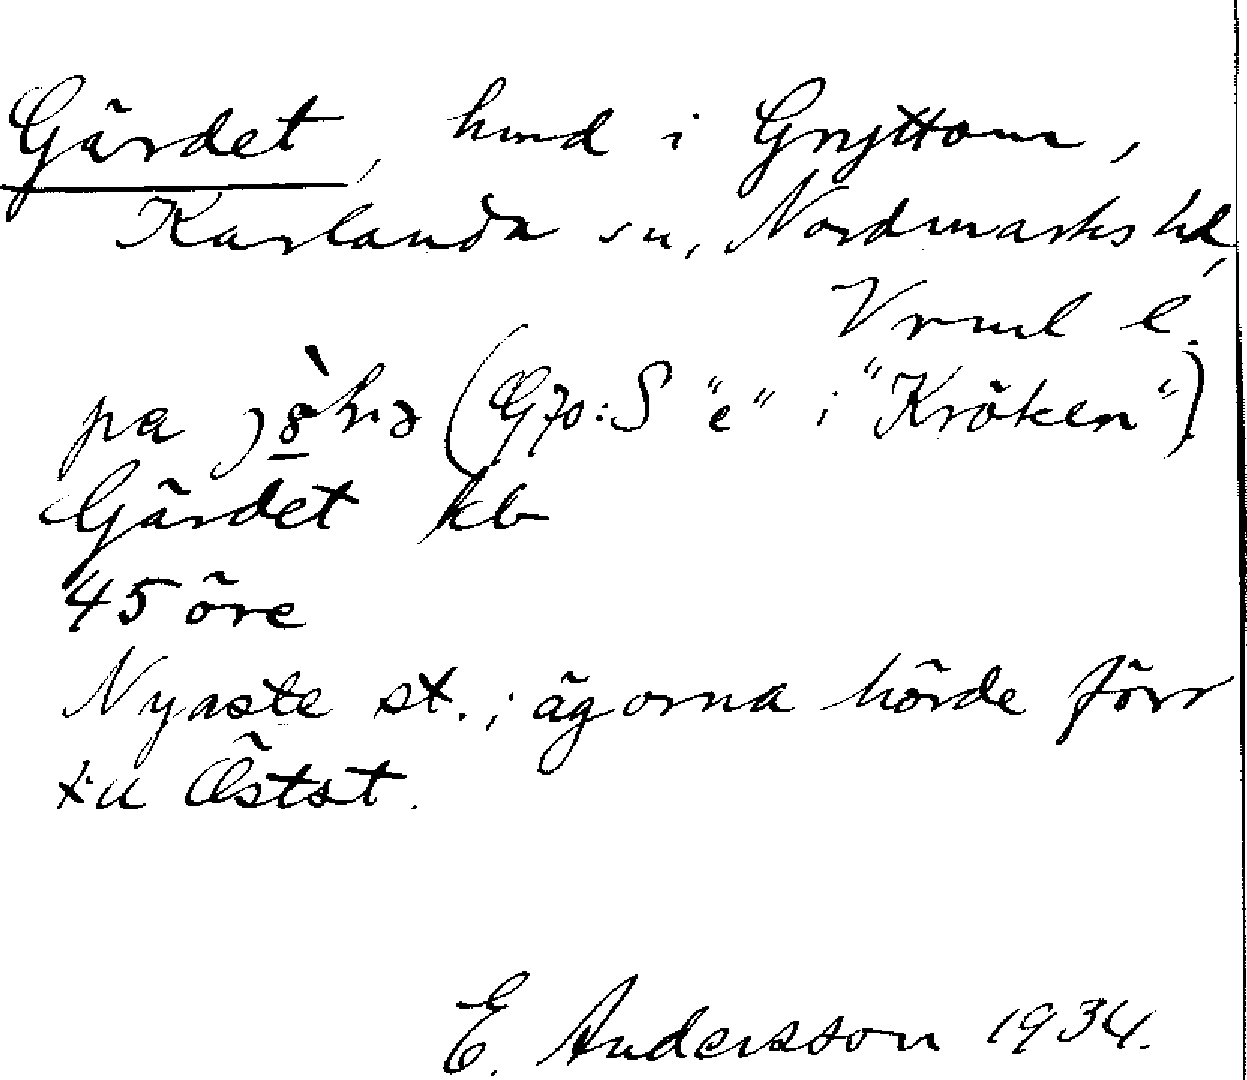 Gärdet, hmd i Gryttom,
Karlanda sn, Nordmarks hd,
Vrml l.
pa (G70:S "e" i "Kröken")
Gärdet kb
45 öre
Nyaste st.; ägorna hörde förr
till Östst.
E. Andersson 1934.